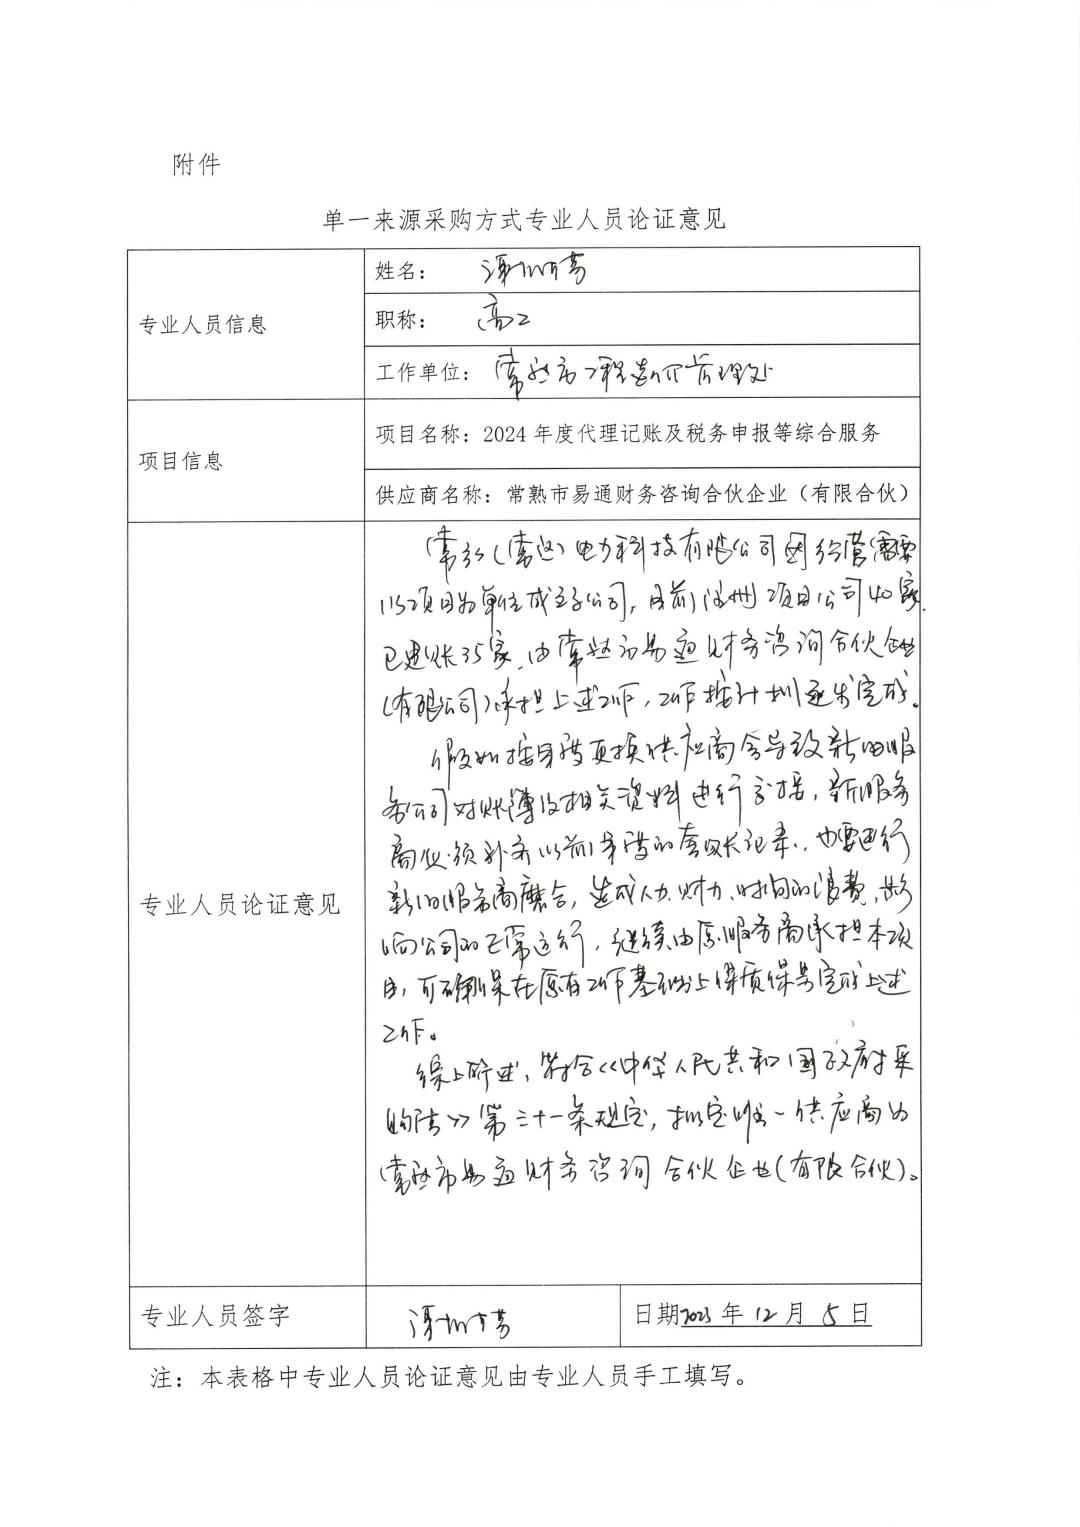 附件
单一来源采购方式专业人员论证意见
专业人员信息
姓名：
职称： 高工
工作单位： 常熟市工程造价管理处
项目信息
项目名称：2024 年度代理记账及税务申报等综合服务
供应商名称：常熟市易通财务咨询合伙企业（有限合伙）
专业人员论证意见
(常熟)电力科技有限公司因经营需要
以项目为单位成立子公司，目前 项目公司40家，
已建账35家，由常熟市易通财务咨询合伙企业
(有限公司)承担上述工作，工作按计划逐步完成。
假如按 更换供应商会导致新的服
务公司对账簿及相关资料进行交接，新服务
商必须补齐以前 的套账记录，也要进行
新旧服务商磨合，造成人力、财力、时间的浪费，影
响公司的正常运行，继续由原服务商承担本项
目，可确保在原有工作基础上保质保量完成上述
工作。
综上所述，符合《中华人民共和国政府采
购法》第三十一条规定，拟定唯一供应商为
常熟市易通财务咨询合伙企业(有限合伙)。
专业人员签字
日期2023年12月5日
注：本表格中专业人员论证意见由专业人员手工填写。